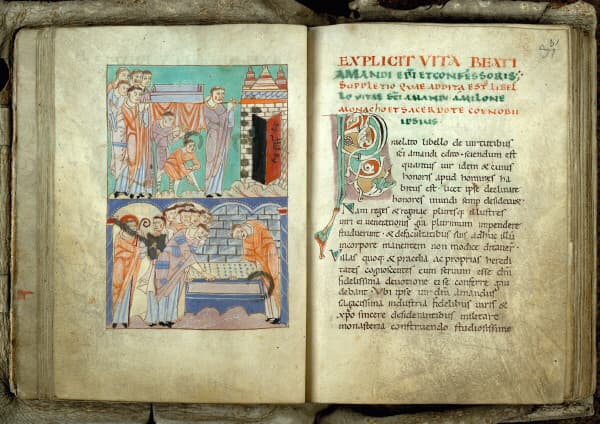 51
EXPLICIT VITA BEATI
AMANDI EPI ET CONFESSORIS
SUPPLETIO QUAE ADDITA EST LIBEL
LO VITAE SCI AMANDI A MILONE
MONACHO ET SACERDOTE COENOBII
IPSIUS
Prelato libello de uirtutibus
sci amandi edito. sciendum est
quantus uir idem & cuius
honoris apud homines ha
bitus est. licet ipse declinare
honores mundi semp desiderauerit
Nam reges & reginae pluresq illustres
uiri ei uenerationis gra plurimum impendere
studuerunt. & de facultatibus suis adhuc illū
in corpore manentem non modice ditauer
Villas quoq & praedia ac proprias heredi
tates cognoscentes eum seruum esse dni
fidelissima deuotione ei st conferre gau
debant. Vbi ipse uir dni amandus
sagacissima industria fidelibus uiris &
xpo sincere desiderantibus militare
monasteria construendo studiosissime